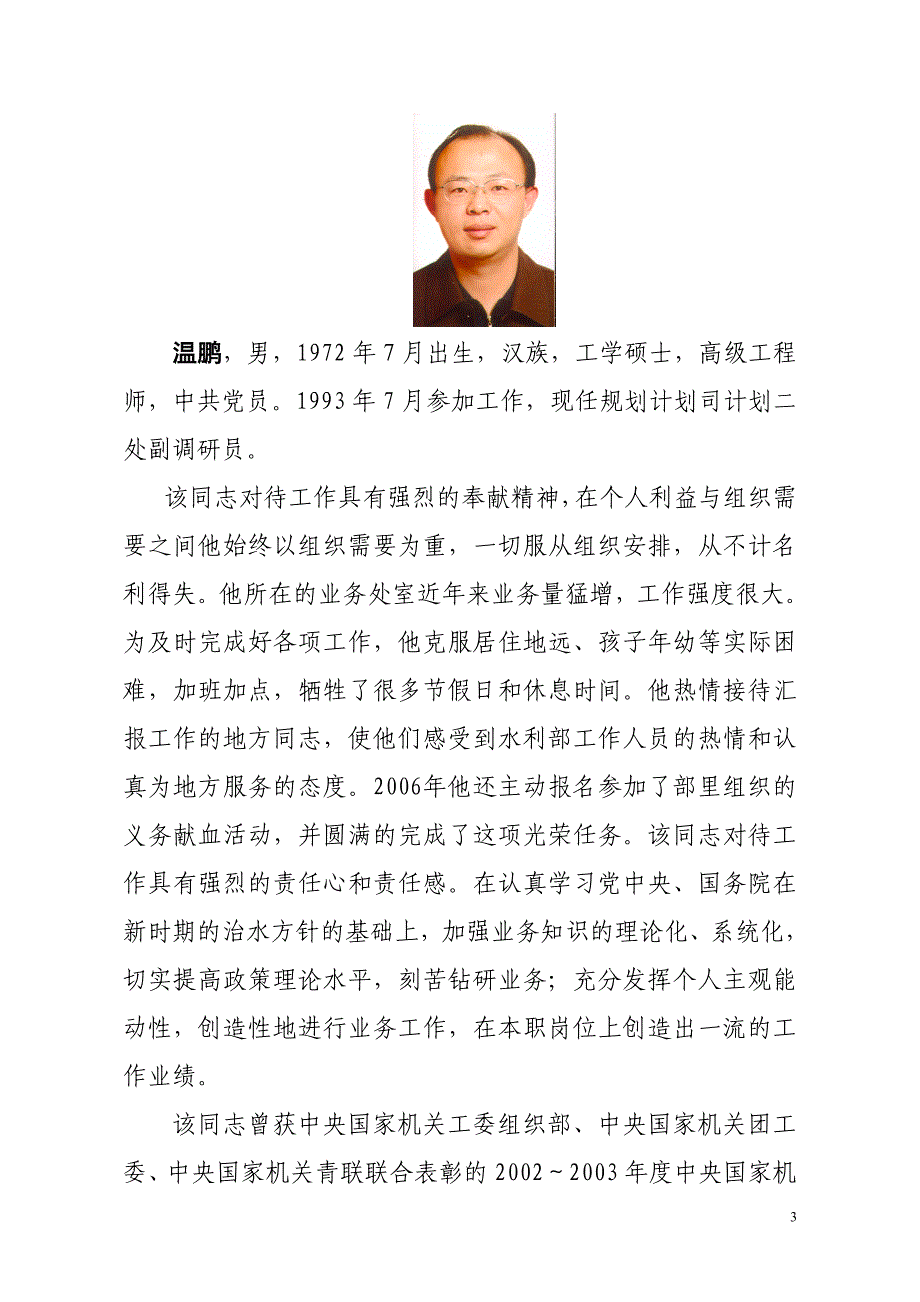 温鹏，男，1972 年 7 月出生，汉族，工学硕士，高级工程
师，中共党员。1993 年 7 月参加工作，现任规划计划司计划二
处副调研员。
该同志对待工作具有强烈的奉献精神，在个人利益与组织需
要之间他始终以组织需要为重，一切服从组织安排，从不计名
利得失。他所在的业务处室近年来业务量猛增，工作强度很大。
为及时完成好各项工作，他克服居住地远、孩子年幼等实际困
难，加班加点，牺牲了很多节假日和休息时间。他热情接待汇
报工作的地方同志，使他们感受到水利部工作人员的热情和认
真为地方服务的态度。2006年他还主动报名参加了部里组织的
义务献血活动，并圆满的完成了这项光荣任务。该同志对待工
作具有强烈的责任心和责任感。在认真学习党中央、国务院在
新时期的治水方针的基础上，加强业务知识的理论化、系统化，
切实提高政策理论水平，刻苦钻研业务；充分发挥个人主观能
动性，创造性地进行业务工作，在本职岗位上创造出一流的工
作业绩。
该同志曾获中央国家机关工委组织部、中央国家机关团工
委、中央国家机关青联联合表彰的 2002～2003 年度中央国家机
3